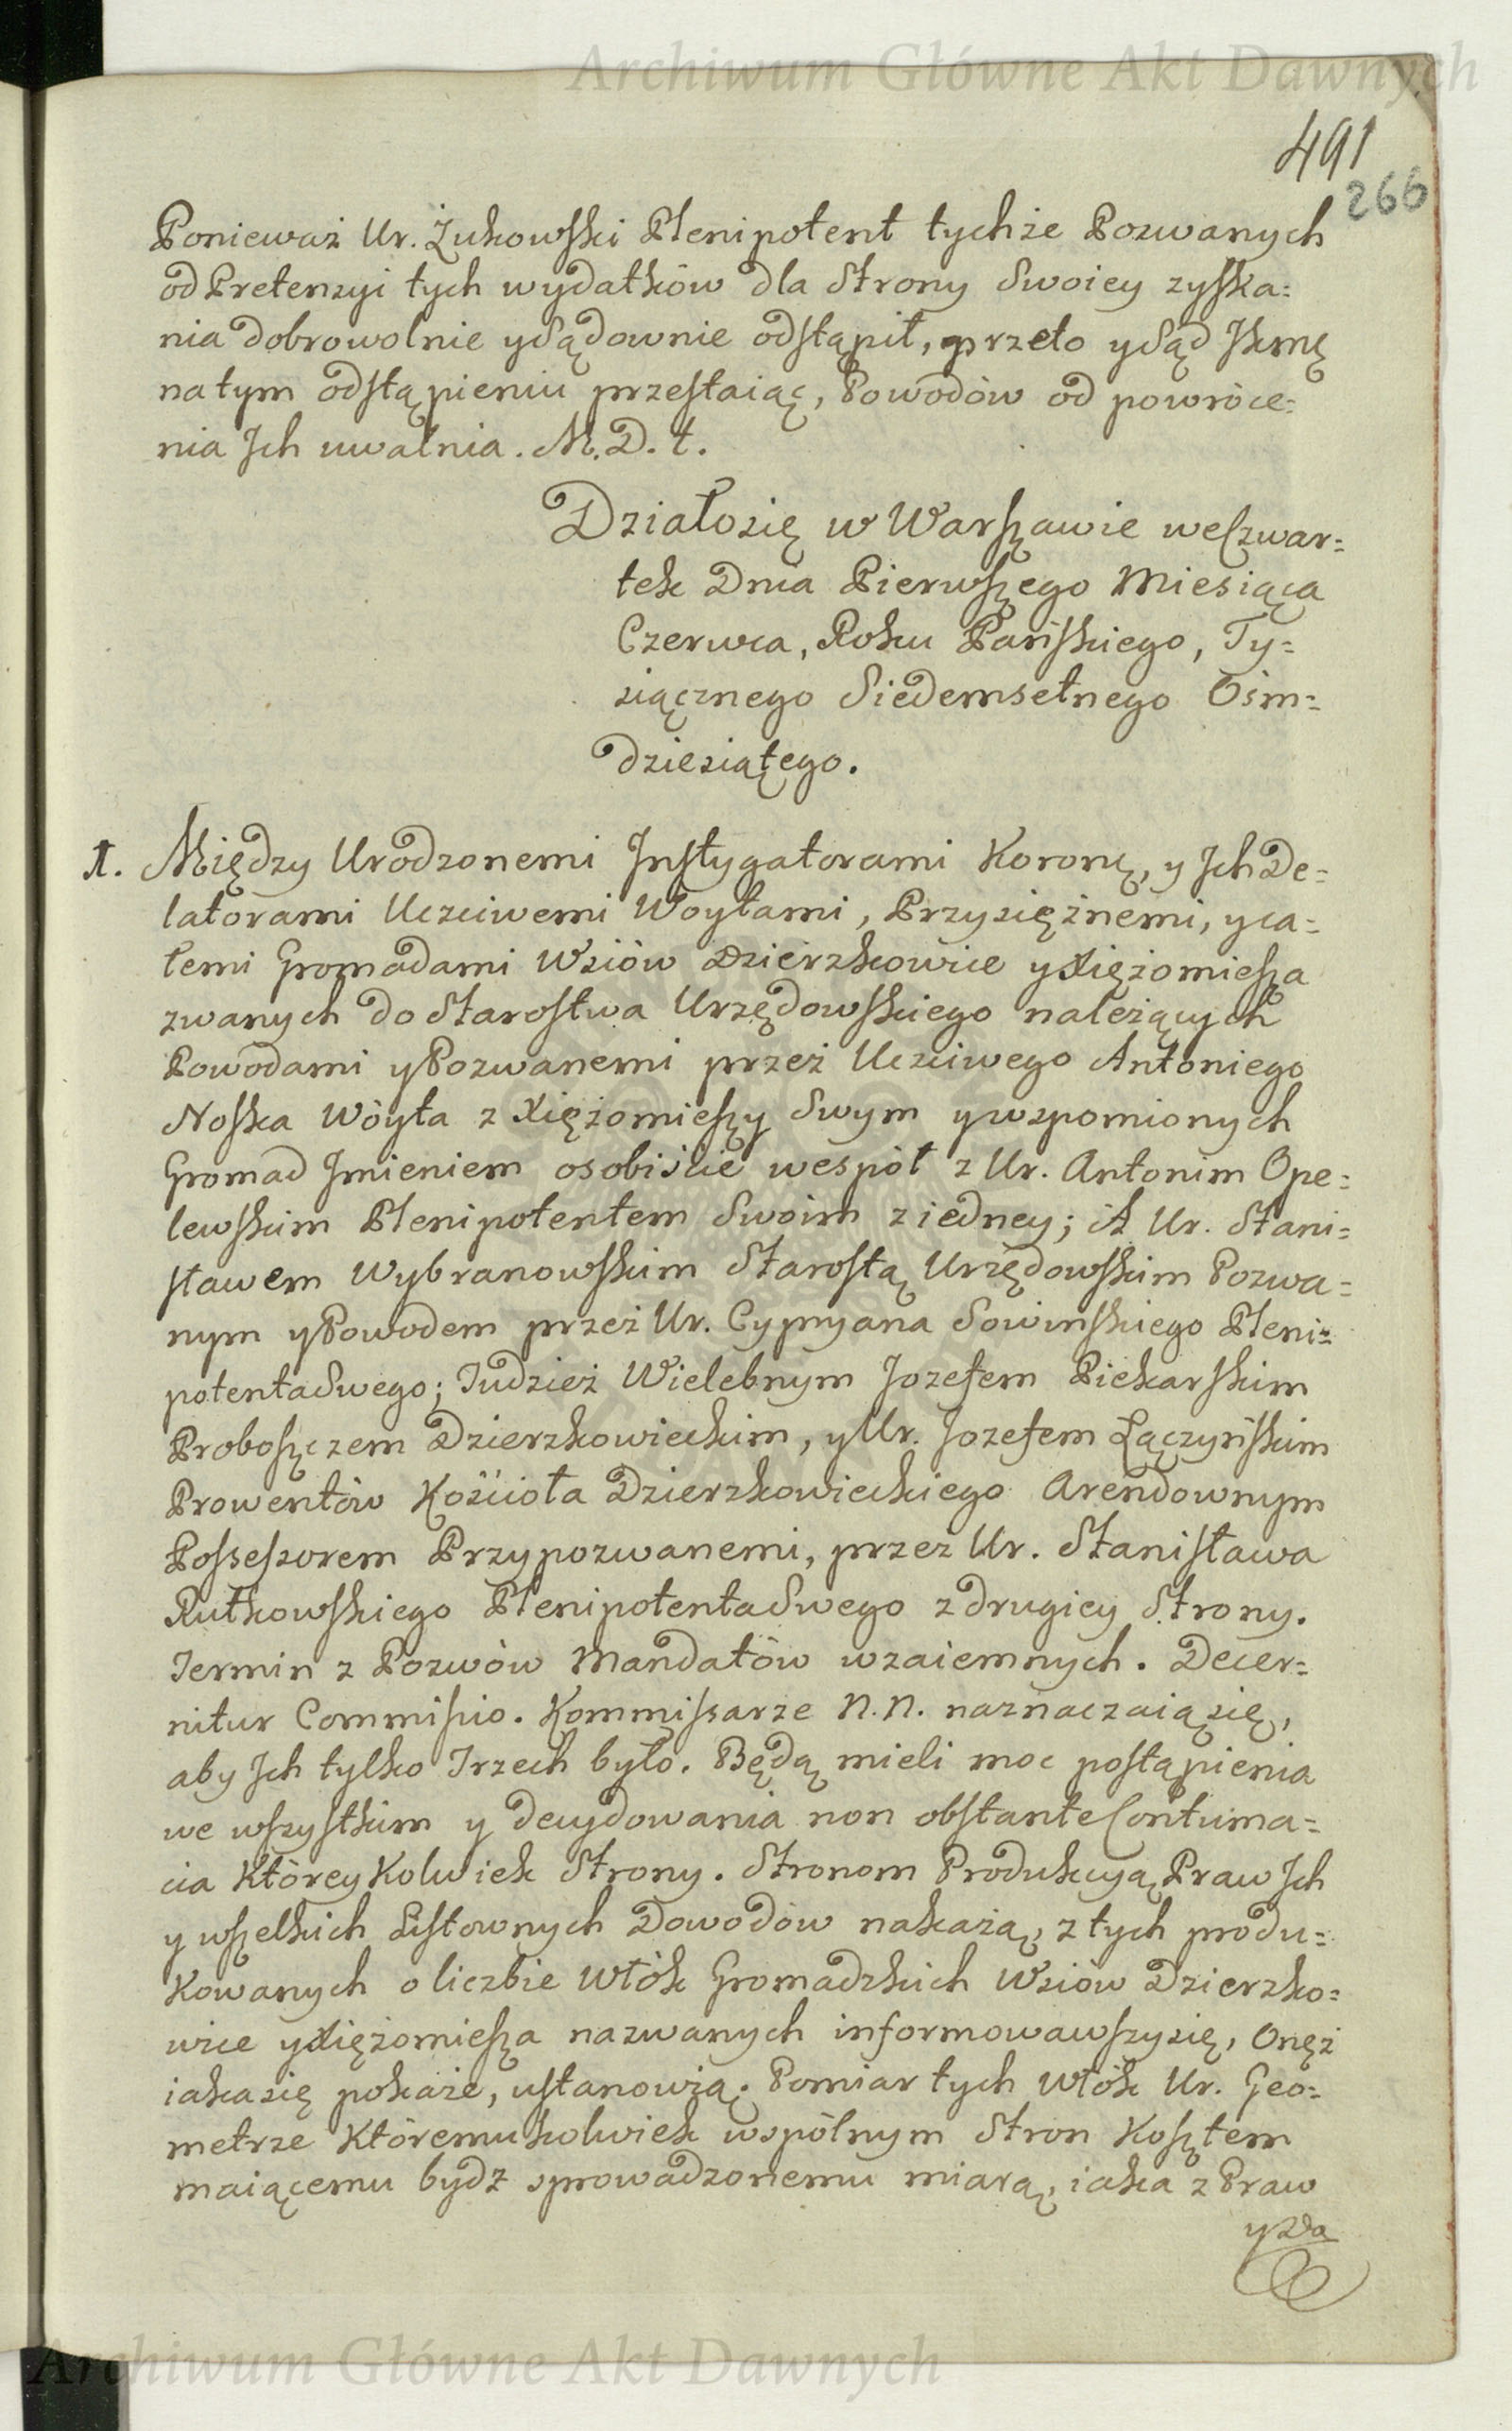 Archiwum Główne Akt Dawnych
491
266
Ponieważ Ur. Żukowski Plenipotent tychże Pozwanych
od Pretensyi tych wydatków dla Strony Swoiey zyska=
nia dobrowolnie y Sądownie odstąpił, przeto y Sąd Jkmę
na tym odstąpieniu przestaiąc, Powodów od powróce=
nia Jch uwalnia. M. D. t.
Działosię w Warszawie we Czwar=
tek Dnia Pierwszego Miesiąca
Czerwca, Roku Pańskiego, Ty=
siącznego Siedemsetnego Ośm=
dziesiątego.
1. Między Urodzonemi Jnstygatorami Koronę, y Jch De=
latorami Uczciwemi Woytami, Przysiężnemi, y ca=
łemi Gromadami Wsiów Dzierzkowice y Xiężomiesza
zwanych do Starostwa Urzędowskiego należących
Powodami y Pozwanemi przez Uczciwego Antoniego
Noska Wóyta z Xiężomieszy Swym y wspomionych
Gromad Jmieniem osobiście wespół z Ur. Antonim Ope=
lewskim Plenipotentem Swoim z iedney; A Ur. Stani=
sławem Wybranowskim Starostą Urzędowskim Pozwa=
nym y Powodem przez Ur. Cypryana Sowinskiego Pleni=
potenta Swego; Tudzież Wielebnym Jozefem Piekarskim
Proboszczem Dzierzkowieckim, y Ur. Jozefem Łączyńskim
Prowentów Kościoła Dzierzkowieckiego Arendownym
Possessorem Przypozwanemi, przez Ur. Stanisława
Rutkowskiego Plenipotenta Swego z drugiey Strony.
Termin z Pozwów Mandatów wzaiemnych. Decer=
nitur Commissio. Kommissarze N. N. naznaczaią się,
aby Jch tylko Trzech było. Będą mieli moc postąpienia
we wszystkim y decydowania non obstante Contuma=
cia Którey Kolwiek Strony. Stronom Produkcyą Praw Jch
y wszelkich Listownych Dowodów nakażą, z tych produ=
kowanych o liczbie Włók Gromadzkich Wsiów Dzierzko=
wice y Xiężomiesza nazwanych informowawszysię, Onęż
iaka się pokaże, ustanowią. Pomiar tych Włók Ur. Geo=
metrze Któremukolwiek wspólnym Stron Kosztem
maiącemu bydź sprowadzonemu miarą, iaka z Praw
y Da
Archiwum Główne Akt Dawnych